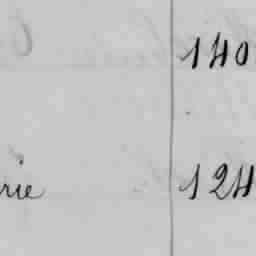 140
rie 124